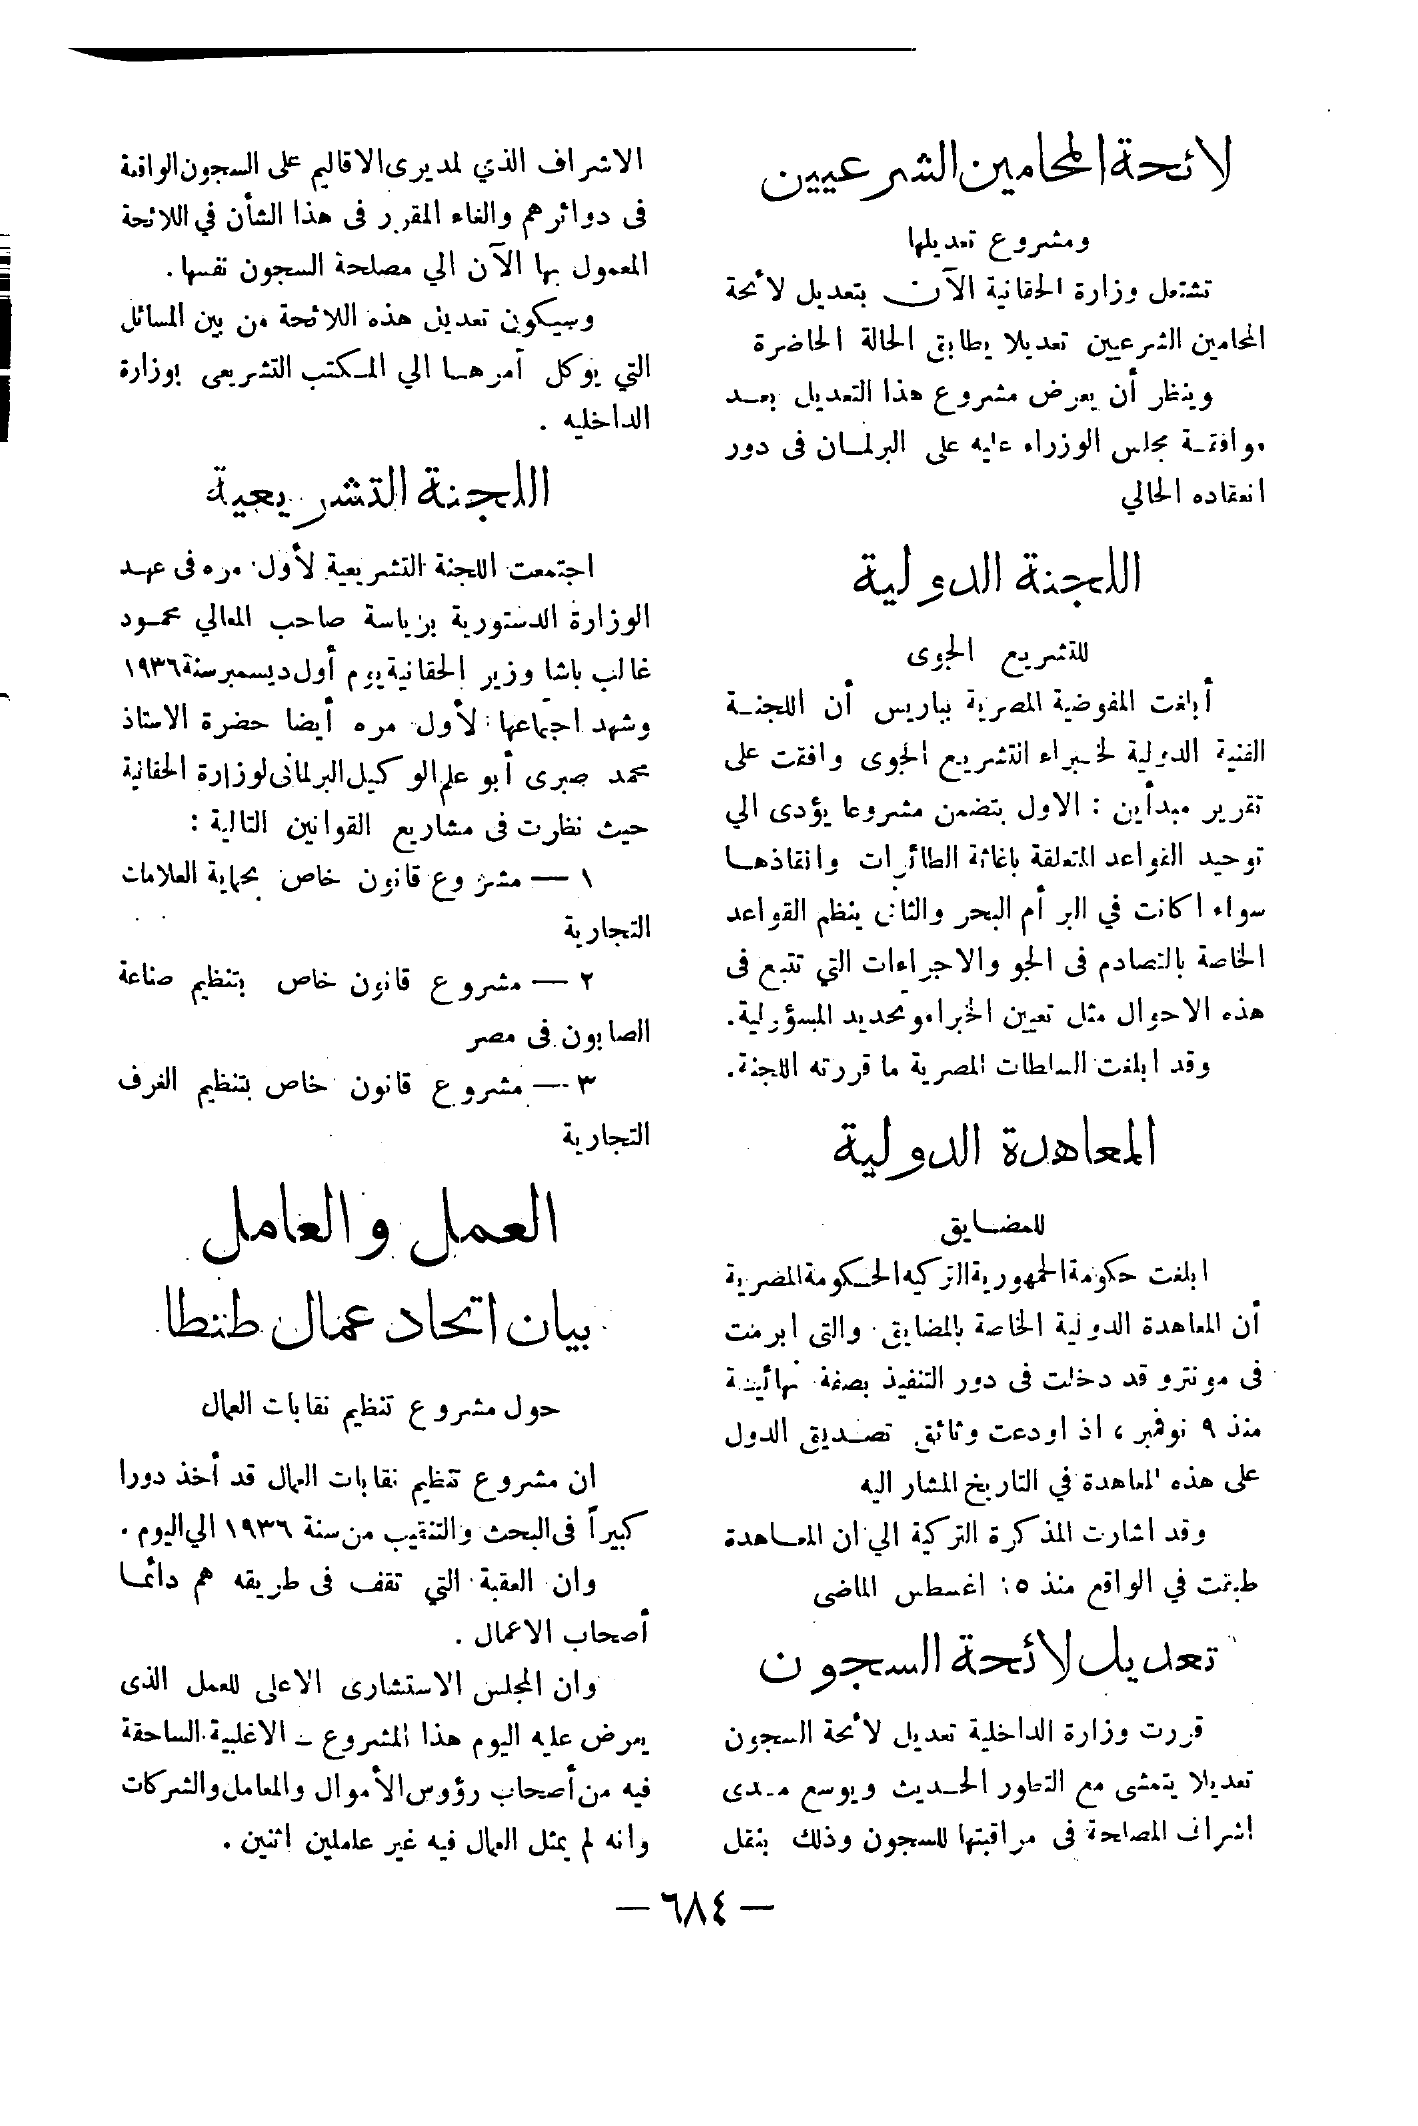 لائحة المحامين الشرعيين
ومشروع تعديلها
تشتغل وزارة الحقانية الآن بتعديل لائحة
المحامين الشرعيين تعديلا يطابق الحالة الحاضرة
وينظر أن يعرض مشروع هذا التعديل بعد
موافقة مجلس الوزراء عليه على البرلمان فى دور
انعقاده الحالي
اللجنة الدولية
للتشريع الجوى
أبلغت المفوضية المصرية بباريس أن اللجنة
الفنية الدولية لخبراء التشريع الجوى وافقت على
تقرير مبدأين : الاول بتضمن مشروعا يؤدى الي
توحيد القواعد المتعلقة باغاثة الطائرات وانقاذها
سواء اكانت في البر أم البحر والثانى ينظم القواعد
الخاصة بالتصادم فى الجو والاجراءات التي تتبع فى
هذه الاحوال مثل تعيين الخبراء وتحديد المسؤولية.
وقد ابلغت السلطات المصرية ما قررته اللجنة.
المعاهدة الدولية
للمضايق
ابلغت حكومة الجمهورية التركيه الحكومة المصرية
أن المعاهدة الدولية الخاصة بالمضايق والتى ابرمت
فى مونترو قد دخلت فى دور التنفيذ بصفة نهائية
منذ ٩ نوفمبر ، اذ اودعت وثائق تصديق الدول
على هذه المعاهدة في التاريخ المشار اليه
وقد اشارت المذكرة التركية الي ان المعاهدة
طبقت في الواقع منذ ١٥ اغسطس الماضى
تعديل لائحة السجون
قررت وزارة الداخلية تعديل لائحة السجون
تعديلا يتمشى مع التطور الحديث ويوسع مدى
اشراف المصلحة فى مراقبتها للسجون وذلك بنقل
الاشراف الذي لمديرى الاقاليم على السجون الواقعة
فى دوائرهم والغاء المقرر فى هذا الشأن في اللائحة
المعمول بها الآن الي مصلحة السجون نفسها .
وسيكون تعديل هذه اللائحة من بين المسائل
التي يوكل أمرها الي المكتب التشريعى بوزارة
الداخليه .
اللجنة التشريعية
اجتمعت اللجنة التشريعية لأول مره فى عهد
الوزارة الدستورية برياسة صاحب المعالي محمود
غالب باشا وزير الحقانية يوم أول ديسمبر سنة ١٩٣٦
وشهد اجتماعها لأول مره أيضا حضرة الاستاذ
محمد صبرى أبو علم الوكيل البرلمانى لوزارة الحقانية
حيث نظرت فى مشاريع القوانين التالية :
١ — مشروع قانون خاص بحماية العلامات
التجارية
٢ — مشروع قانون خاص بتنظيم صناعة
الصابون فى مصر
٣ — مشروع قانون خاص بتنظيم الغرف
التجارية
العمل والعامل
بيان اتحاد عمال طنطا
حول مشروع تنظيم نقابات العمال
ان مشروع تنظيم نقابات العمال قد أخذ دورا
كبيراً فى البحث والتنقيب من سنة ١٩٣٦ الي اليوم .
وان العقبة التي تقف فى طريقه هم دائما
أصحاب الاعمال .
وان المجلس الاستشارى الاعلى للعمل الذى
يعرض عليه اليوم هذا المشروع — الاغلبية الساحقة
فيه من أصحاب رؤوس الأموال والمعامل والشركات
وانه لم يمثل العمال فيه غير عاملين اثنين .
— ٦٨٤ —